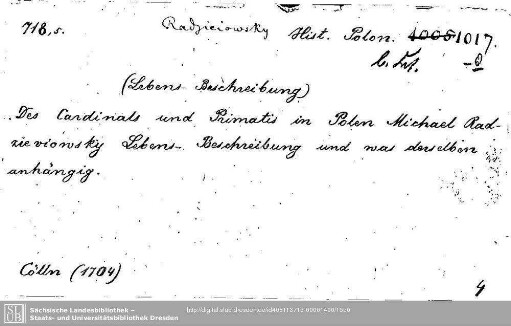 718,5. Radzieiowsky Hist. Polon. 1005 1017.
(Lebens Beschreibung)
Des Cardinals und Primatis in Polen Michael Rad-
zieviowsky Lebens- Beschreibung und was derselben
anhängig.
Cölln (1704)
4
Sächsische Landesbibliothek –
Staats- und Universitätsbibliothek Dresden